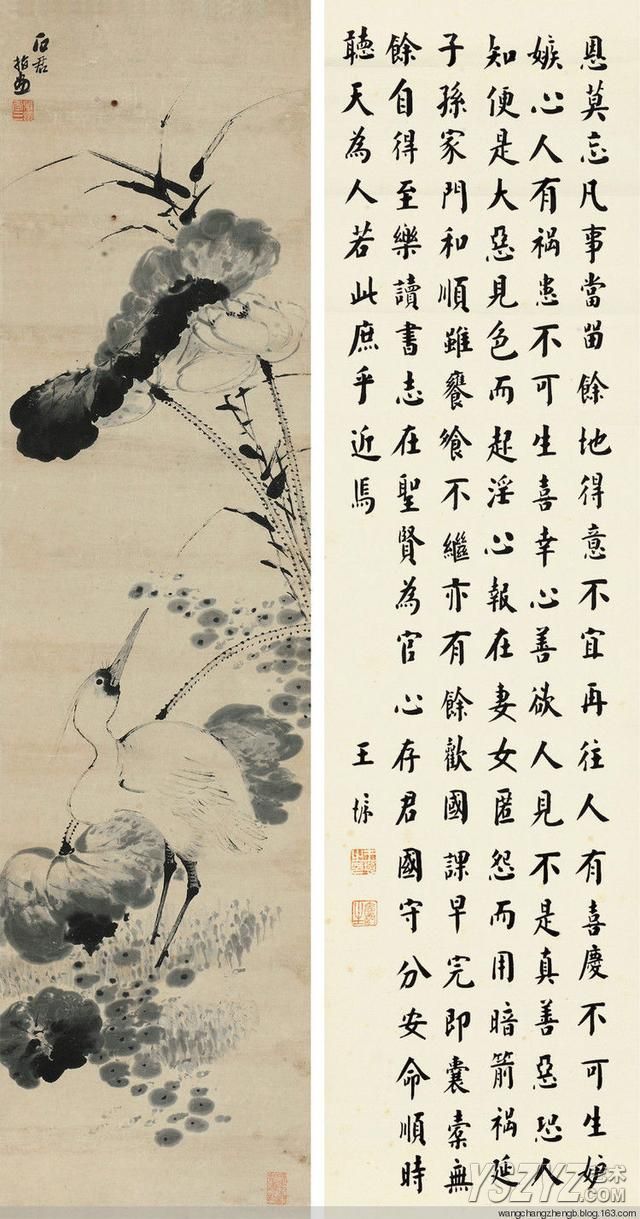 恩莫忘凡事當留餘地得意不宜再往人有喜慶不可生妒
嫉心人有禍患不可生喜幸心善欲人見不是真善惡恐人
知便是大惡見色而起淫心報在妻女匿怨而用暗箭禍延
子孫家門和順雖饔飧不繼亦有餘歡國課早完即囊橐無
餘自得至樂讀書志在聖賢為官心存君國守分安命順時
聽天為人若此庶乎近焉
王垿
石君
指画
YSZYZ艺术
wangchangzhengb.blog.163.com